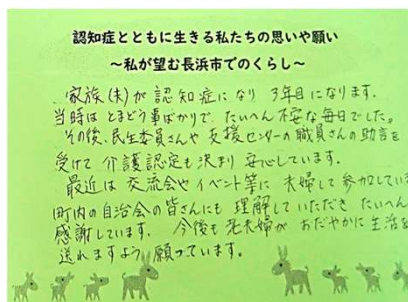 認知症とともに生きる私たちの思いや願い
～私が望む長浜市でのくらし～
家族(夫)が認知症になり 3年目になります。
当時は とまどう事ばかりで、たいへん不安な毎日でした。
その後、民生委員さんや支援センターの職員さんの助言を
受けて 介護認定も決まり 安心しています。
最近は 交流会やイベント等に 夫婦して参加してい
町内の自治会の皆さんにも 理解していただき たいへん
感謝しています。 今後も 老夫婦が おだやかに生活を
送れますよう 願っています。